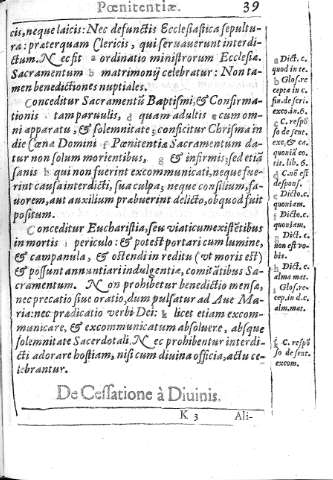 Pœnitentiæ. 39
cis, neque laicis: Nec defunctis Ecclesiastica sepultu-
ra: præterquam Clericis, qui seruauerunt interdi-
ctum. Nec fit a ordinatio ministrorum Ecclesiæ.
Sacramentum b matrimonij celebratur: Non ta-
men benedictiones nuptiales.
Conceditur Sacramentũ Baptismi, & Confirma-
tionis tam paruulis, quam adultis cum om-
ni apparatu, & solemnitate; conficitur Chrisma in
die Cœna Domini f Pœnitentiæ Sacramentum da-
tur non solum morientibus, g & infirmis; sed etiã
sanis h qui non fuerint excommunicati, neque fue-
rint causa interdicti, sua culpa; neque consilium, fa-
uorem, aut auxilium præbuerint delicto, ob quod fuit
positum.
Conceditur Eucharistia, seu viaticum existẽtibus
in mortis i periculo: & potest portari cum lumine,
& campanula, & ostendi in reditu (vt moris est)
& possunt annuntiari indulgentiæ, comitãtibus Sa-
cramentum. Non prohibetur benedictio mensæ,
nec precatio siue oratio, dum pulsatur ad Aue Ma-
ria: nec prædicatio verbi Dei: k licet etiam excom-
municare, & excommunicatum absoluere, absque
solemnitate Sacerdotali. Nec prohibentur interdi-
cti adorare hostiam, nisi cum diuina officia, actu ce-
lebrantur.
De Cessatione à Diuinis.
K 3 Ali-
a Dict. c.
quod in te.
b Glos. re
cepta in c.
exo. in. 6.
c C. respõ
so de sent.
exc, & ca.
quoniã eo.
tit. lib. 6.
d C. nõ est
de spons.
e Dict. c.
quoniam.
f Dict. c.
quoniam.
g Dict. c.
non est vo-
bis.
h Dict. c.
alma mat.
i Glos. re-
cep. in d. c.
alm. mat.
k C. respõ
so de sent.
excom.